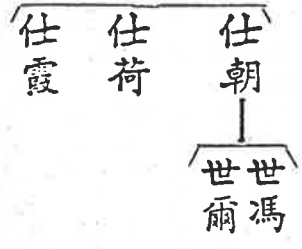 仕朝
仕荷
仕霞
世馮
世爾